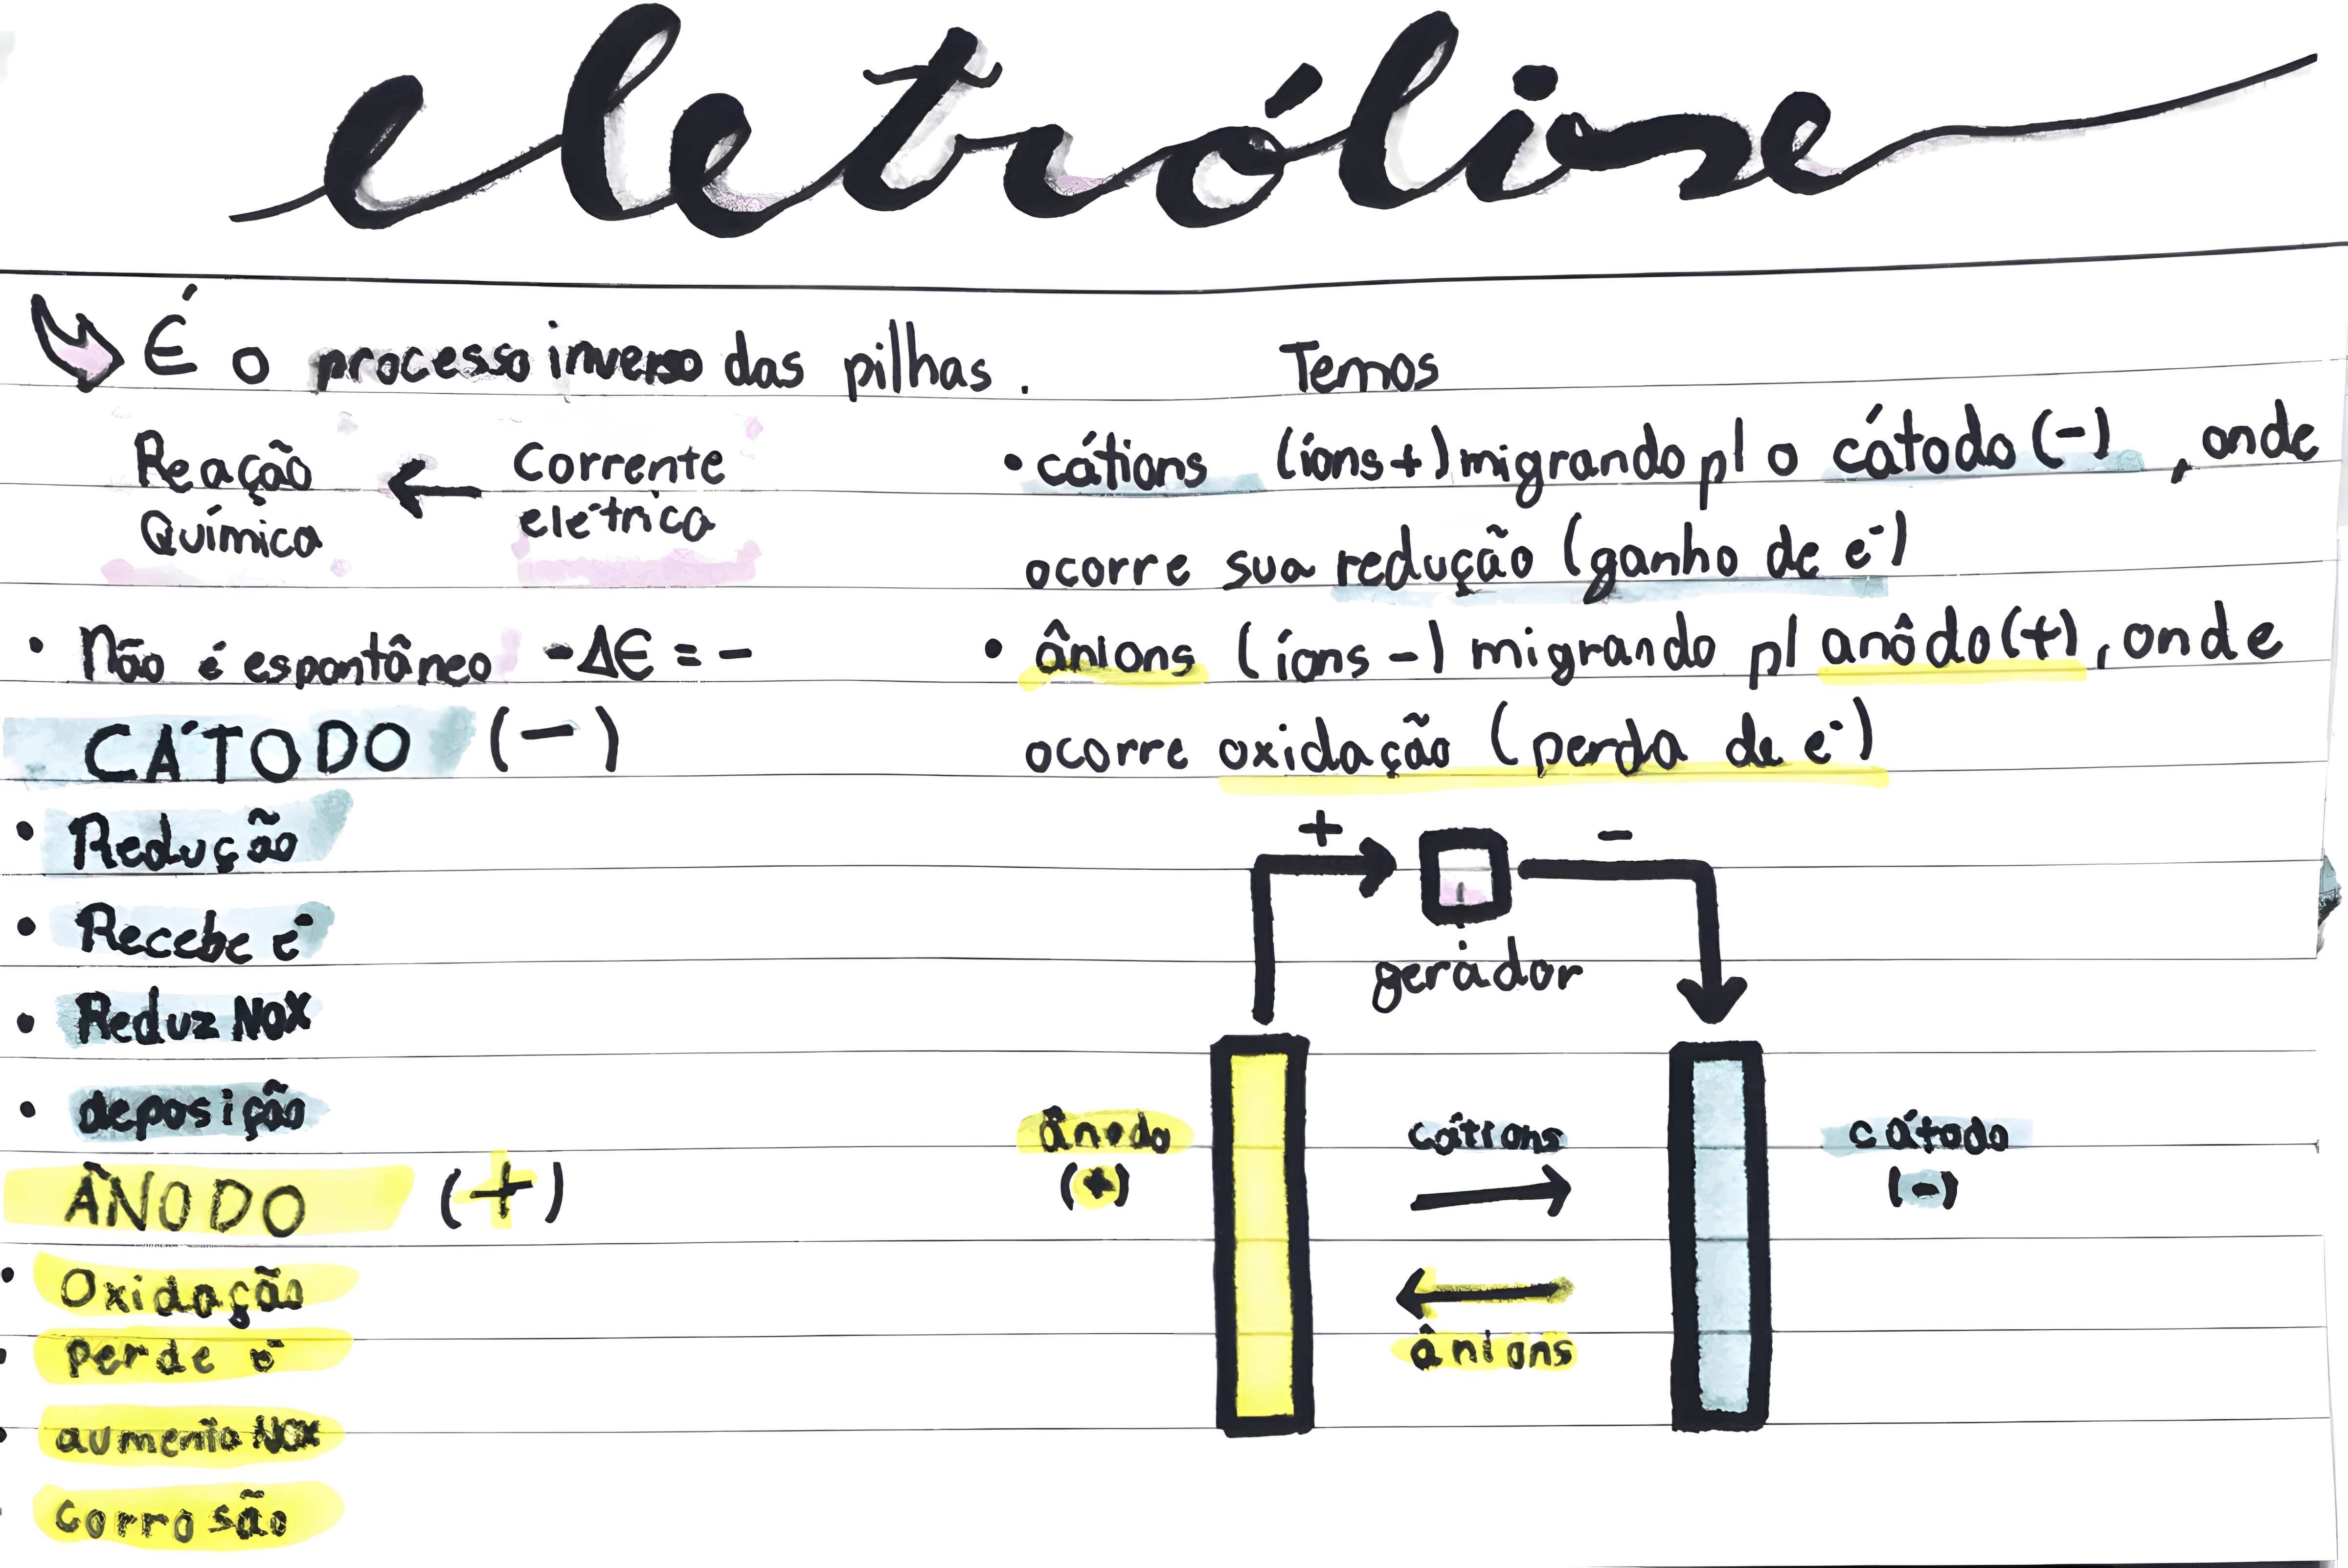 eletrólise
É o processo inverso das pilhas.
Reação ← Corrente
Química elétrica
• Não é espontâneo - ΔE = -
CÁTODO (-)
• Redução
• Recebe e⁻
• Reduz NOX
• deposição
ÂNODO (+)
• Oxidação
• perde e⁻
• aumenta NOX
• corrosão
Temos
• cátions (íons +) migrando p/ o cátodo (-), onde
ocorre sua redução (ganho de e⁻)
• ânions (íons -) migrando p/ anôdo (+), onde
ocorre oxidação (perda de e⁻)
+ -
gerador
ânodo cátions cátodo
(+) → (-)
←
ânions